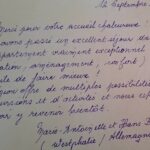 12 Septembre
Merci pour votre accueil chaleureux !
avons passé un excellent séjour da
appartement vraiment exceptionnel
ation, aménagement, confort)
ile de faire mieux !
gion offre de multiples possibilités
ursions et d'activités et nous espé
oir y revenir bientôt.
Marie-Antoinette et Hans D
Westphalie / Allemagne